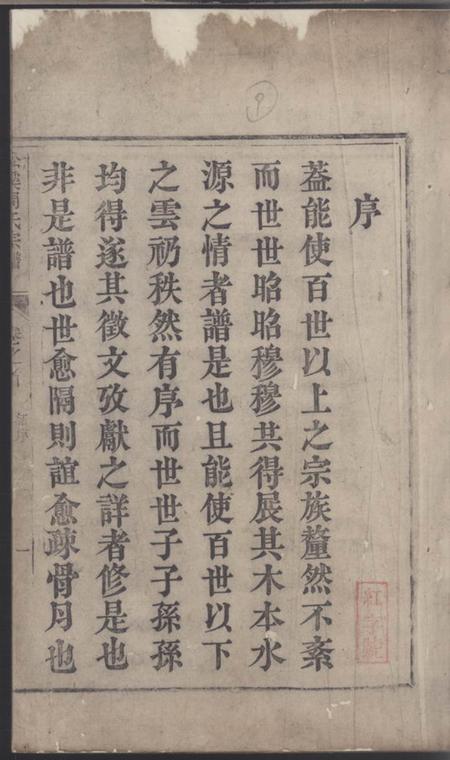 序
蓋能使百世以上之宗族釐然不紊
而世世昭昭穆穆其得展其木本水
源之情者譜是也且能使百世以下
之雲礽秩然有序而世世子子孫孫
均得遂其徵文攷獻之詳者修是也
非是譜也世愈隔則誼愈疎骨月也
氏宗譜
一